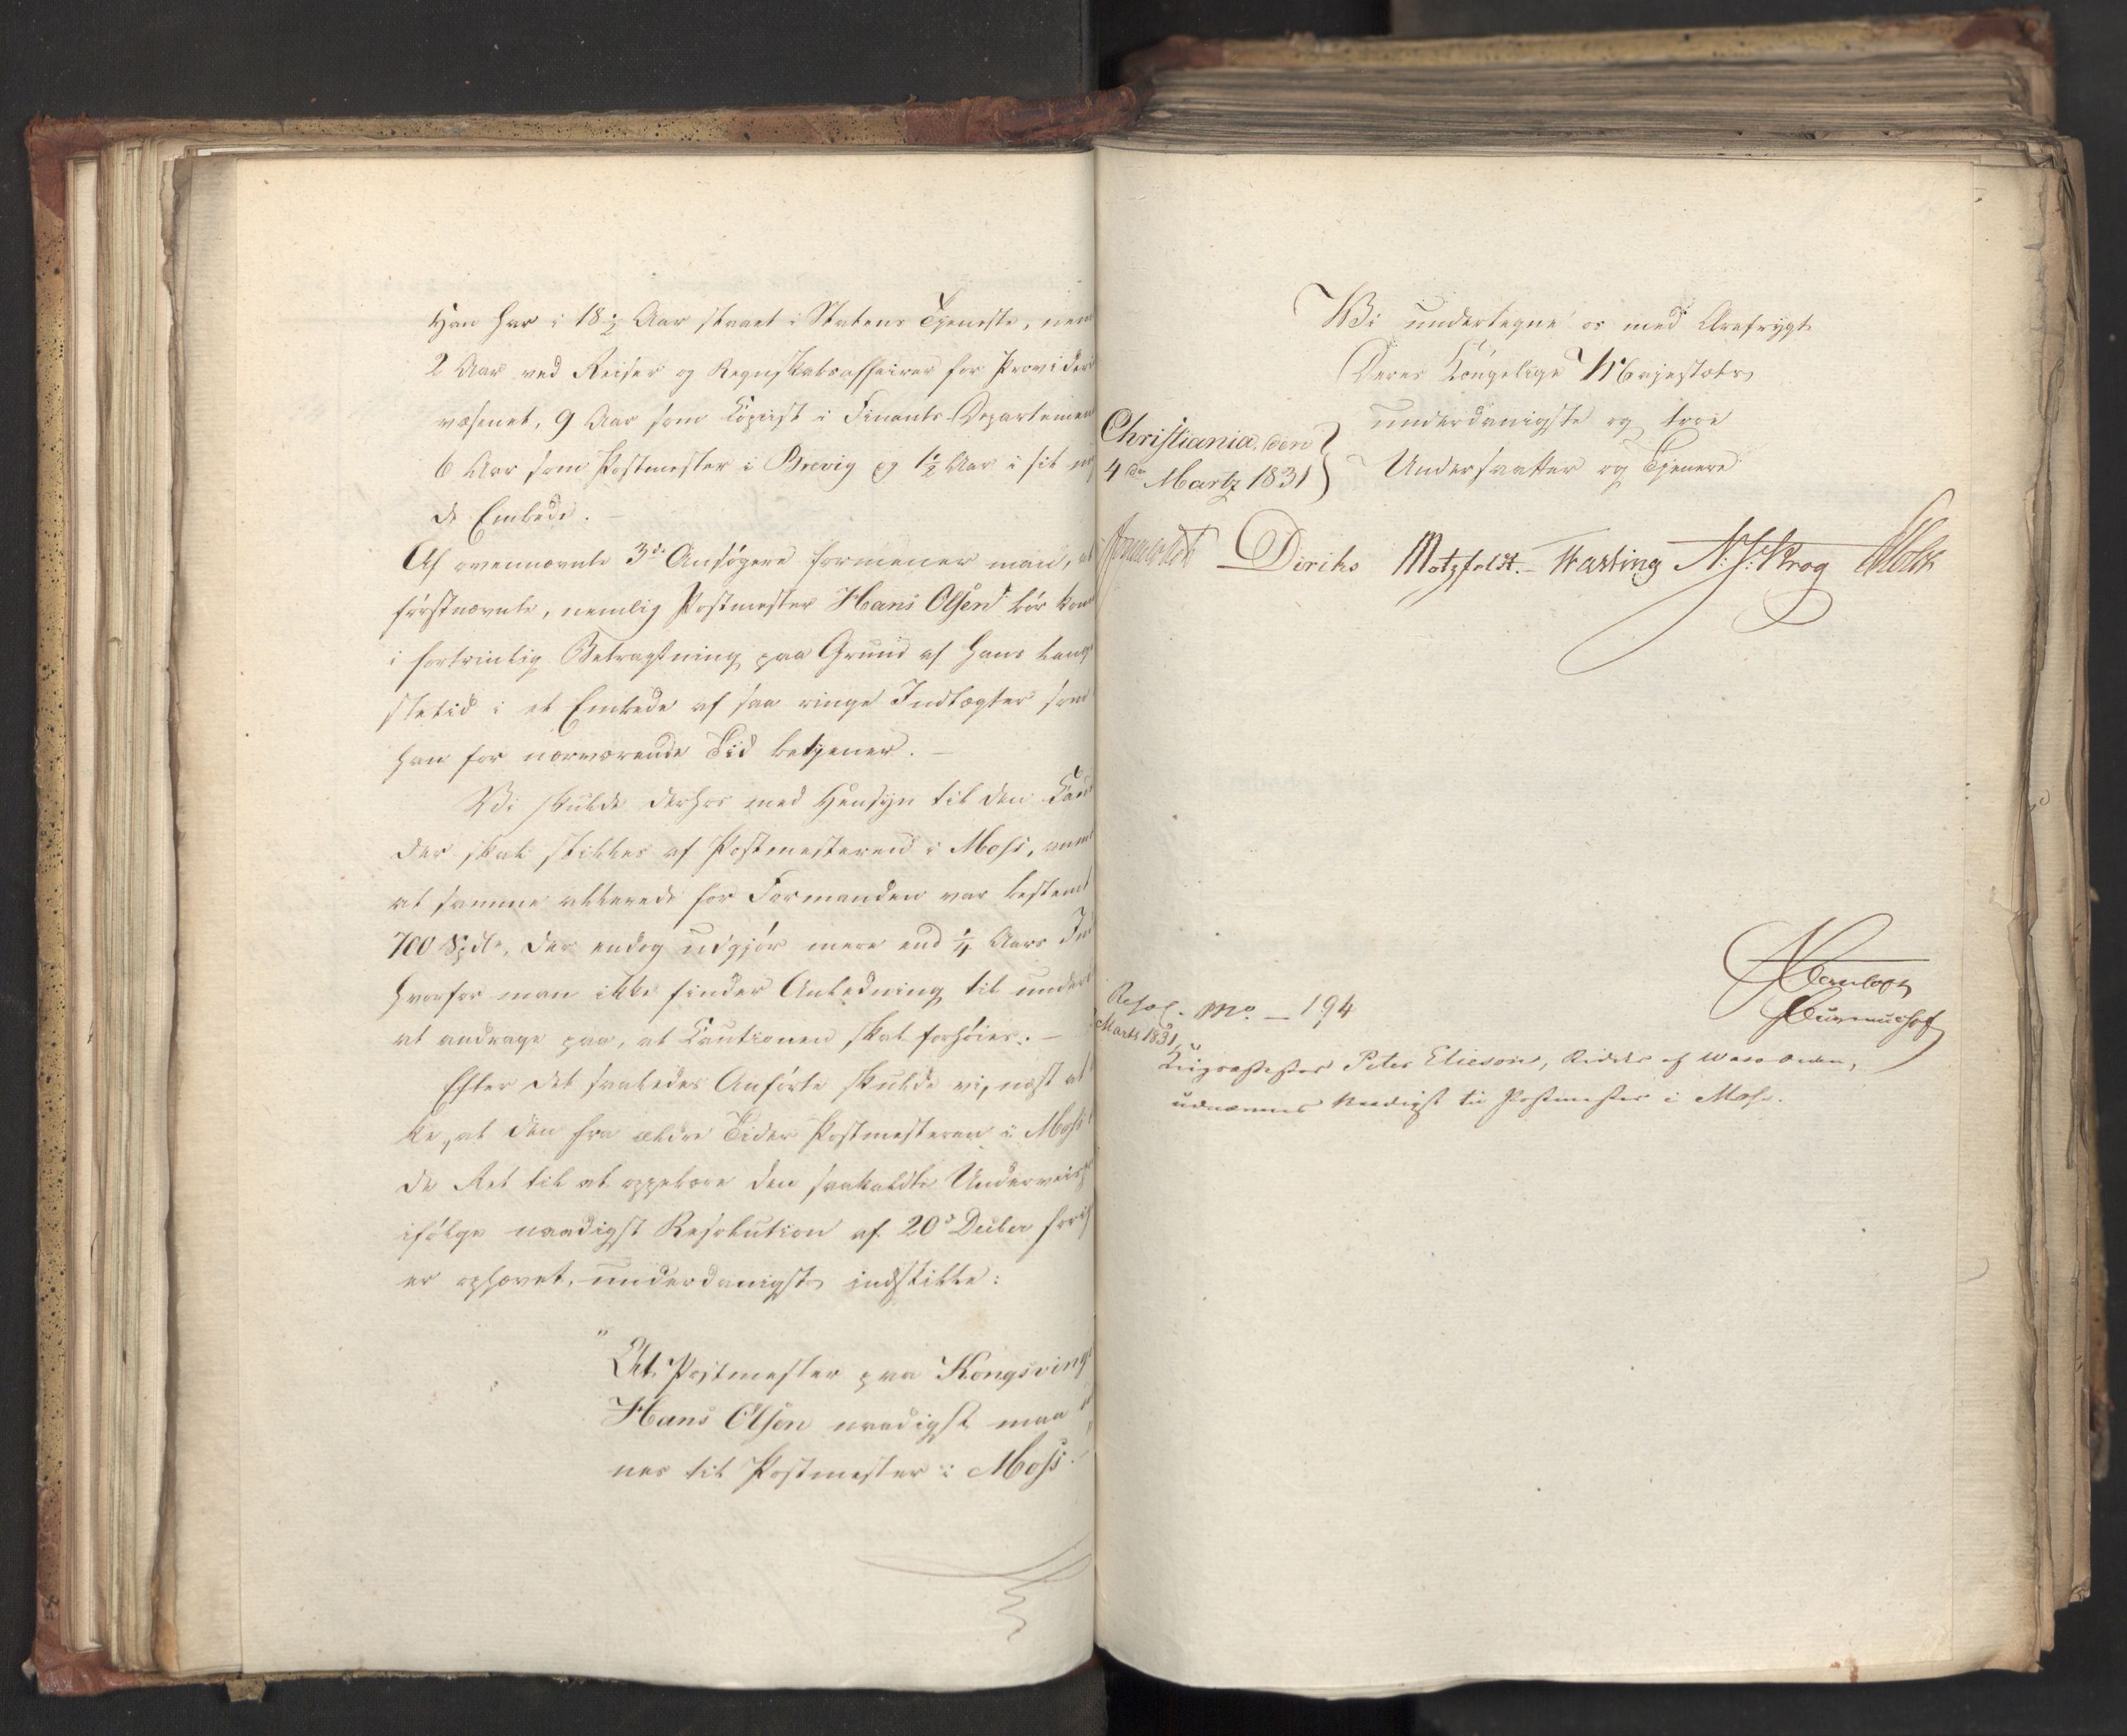 Han har i 18 1/2 Aar staaet i Statens Tjeneste, nem
2 Aar ved Reiser og Regnskabsaffairer for Provideri
væsenet, 9 Aar som Copiist i Finants-Departemen
6 Aar som Postmester i Brevig og 1 1/2 Aar i sit
de Embede. –
Af ovennævnte 3de Ansøgere formener man,
førstnævnte, nemlig Postmester Hans Olsen bør kom
i fortrinlig Betragtning paa Grund af hans lang
stetid i et Embede af saa ringe Indtægter som
han for nærværende Tid betjener. –
Vi skulde derhos med Hensyn til den Cau
der skal stilles af Postmesteren i Moss, anm
at samme allerede for Formanden var bestemt
700 Spdlr, der endog udgjør mere end 1/4 Aars Ind
hvorfor man ikke finder Anledning til under
at andrage paa, at Cautionen skal forhøies. –
Efter det saaledes Anførte skulde vi, næst at
ke, at den fra ældre Tider Postmesteren i Moss
de Ret til at oppebære den saakaldte Underveis
ifølge naadigst Resolution af 20de Decbr
er ophævet, underdanigst indstille:
"At Postmester paa Kongsving
Hans Olsen naadigst maa
nes til Postmester i Moss."
Vi undertegne os med Ærefrygt
Deres Kongelige Majestæts
underdanigste og troe
Christiania, den
4de Martz 1831
Undersaatter og Tjenere
Diriks Motzfeldt. Fasting N. J. Krog Holst
Resol. No. – 194
Marts 1831,
Krigsassessor Peter Elieson, Ridder af Wasa Orden,
udnævnes Naadigst til Postmester i Moss.